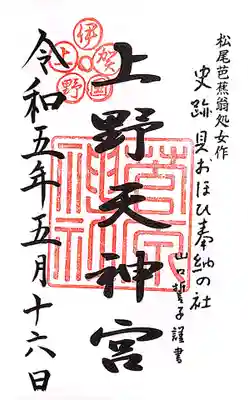 松尾芭蕉翁処女作
史跡 貝おほひ奉納の社
山口誓子謹書
伊賀国上野
上野天神宮
菅原神社
令和五年五月十六日